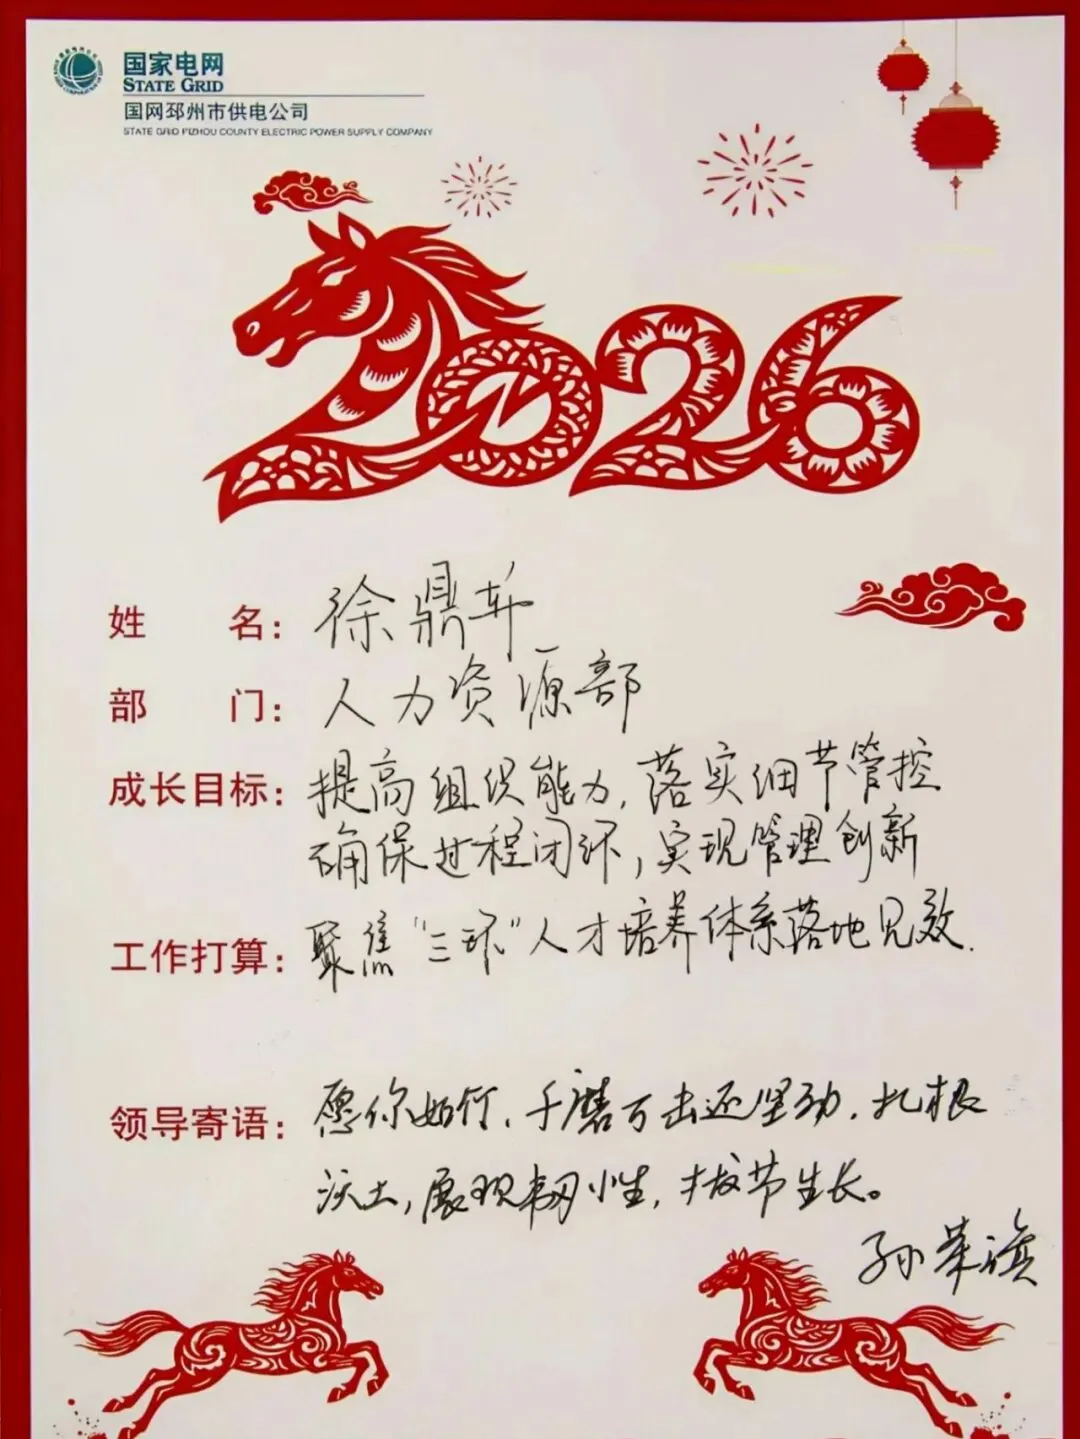 国家电网
STATE GRID
国网邳州市供电公司
STATE GRID PIZHOU COUNTY ELECTRIC POWER SUPPLY COMPANY
2026
姓 名：徐鼎
部 门：人力资源部
成长目标：提高组织能力，落实细节管控
确保过程闭环，实现管理创新
工作打算：聚焦“三环”人才培养体系落地见效.
领导寄语：愿你如竹，千磨万击还坚劲，扎根
沃土，展现韧性，拔节生长。
孙荣